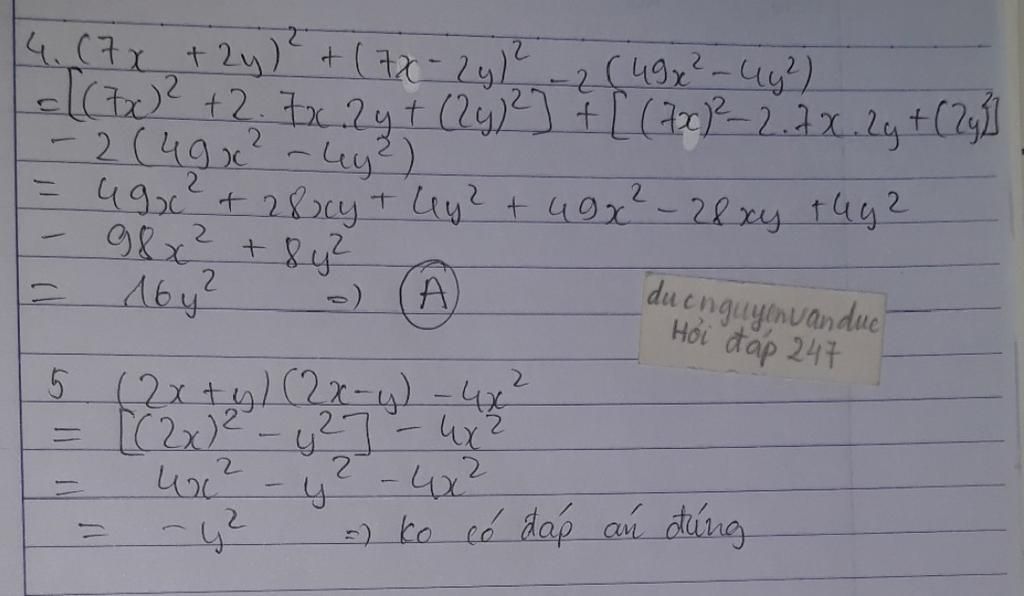 4. (7x + 2y)² + (7x - 2y)² - 2 (49x² - 4y²)
= [(7x)² + 2. 7x.2y + (2y)²] + [(7x)² - 2.7x.2y + (2y)²]
- 2 (49x² - 4y²)
= 49x² + 28xy + 4y² + 49x² - 28xy + 4y²
- 98x² + 8y²
= 16y² => A
ducnguyenvanduc
Hỏi đáp 247
5 (2x + y) (2x - y) - 4x²
= [(2x)² - y²] - 4x²
= 4x² - y² - 4x²
= - y² => ko có đáp án đúng